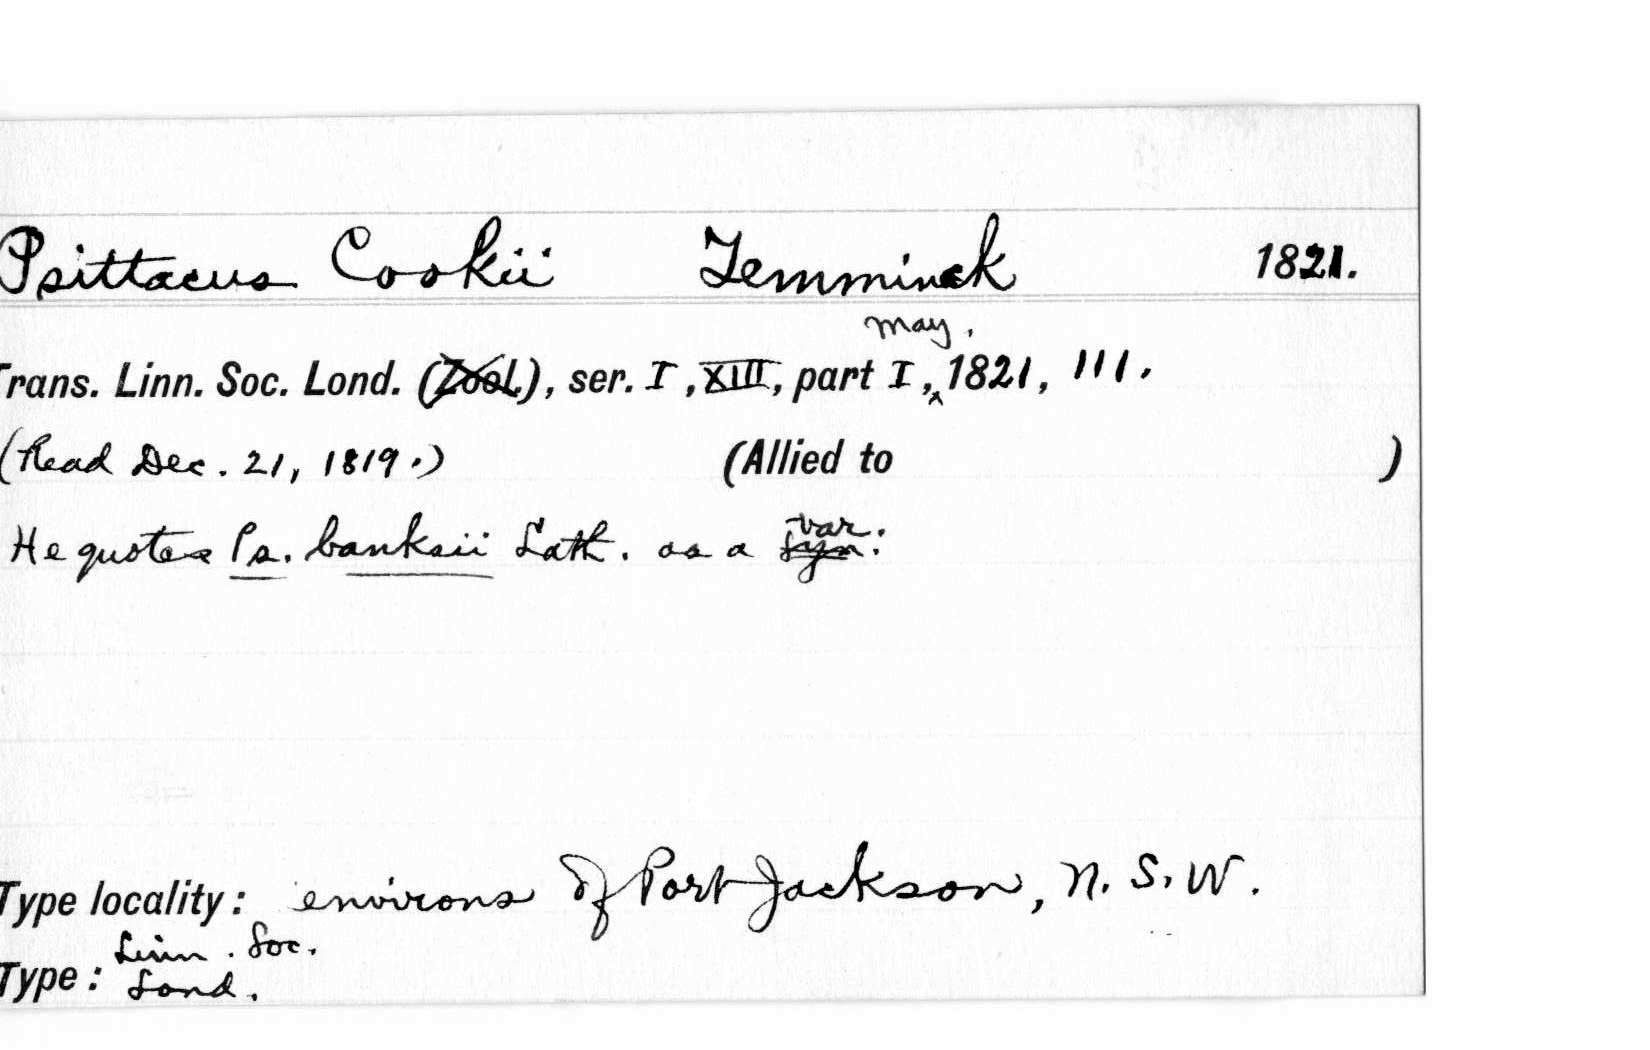 Psittacus Cookii Temminck 1821.
May.
Trans. Linn. Soc. Lond. (Zool.), ser. I, XIII, part I, ^ 1821, 111.
(Read Dec. 21, 1819.) (Allied to )
var.
He quotes Ps. banksii Lath. as a syn:
Type locality: environs of Port Jackson, N. S. W.
Linn. Soc.
Type: Lond.